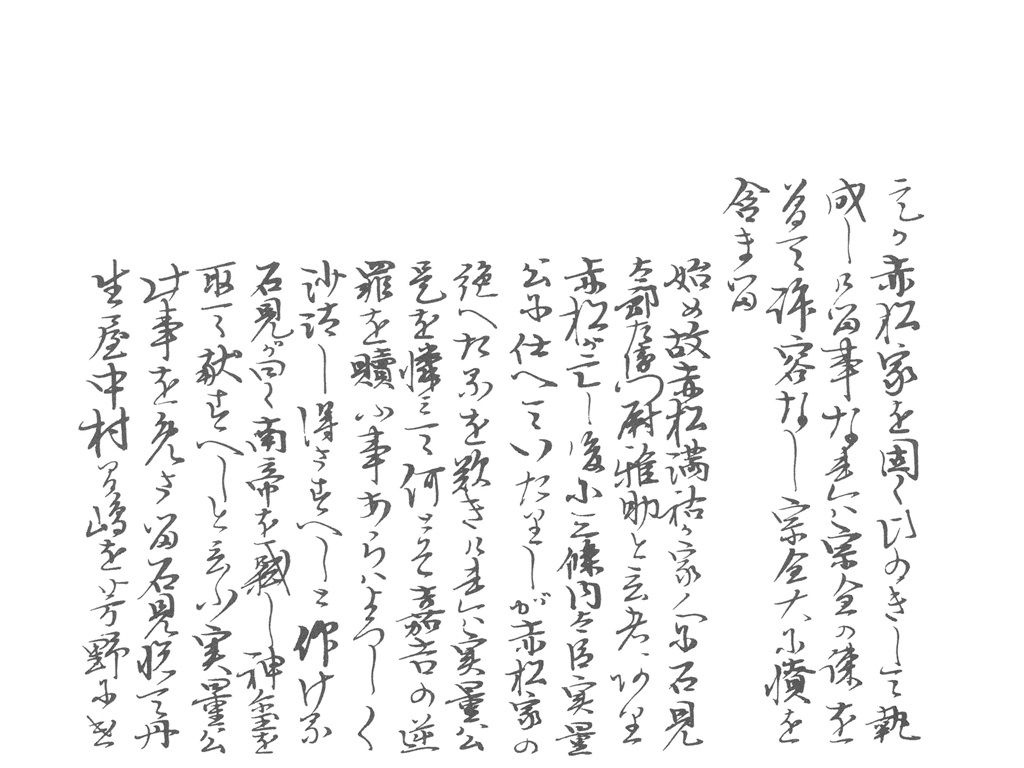 赤松家を固く のきして執
成しける事なれは宗全の諫を
曾て許容なし宗全大に憤を
含まる
始め故赤松満祐か家人に石見
太郎左衛門尉雅助と云者あり
赤松が亡し後三條内大臣実量
公に仕へていたりしが赤松家の
絶へたるを歎きけれは実量公
是を憐みて何とそ嘉吉の逆
罪を贖ふ事あらはよろしく
沙汰し得さすへしと仰ける
石見が曰く南帝を弑し神璽を
取て献すへしと云ふ実量公
此事を免さる石見悦て丹
生屋中村間嶋を芳野に遣